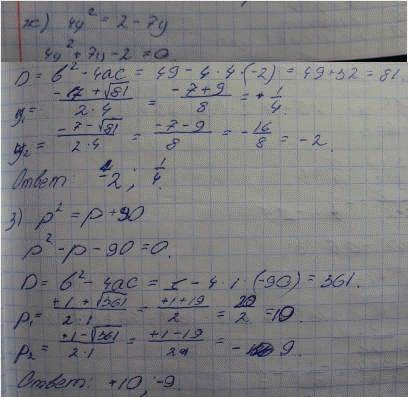 ж) 4y² = 2 - 7y
4y² + 7y - 2 = 0
D = b² - 4ac = 49 - 4 · 4 · (-2) = 49 + 32 = 81
y₁ = (-7 + √81)/(2 · 4) = (-7 + 9)/8 = + 1/4.
y₂ = (-7 - √81)/(2 · 4) = (-7 - 9)/8 = - 16/8 = -2.
Ответ: -2; 1/4.
з) p² = p + 90
p² - p - 90 = 0.
D = b² - 4ac = 1 - 4 · 1 · (-90) = 361.
p₁ = (+1 + √361)/(2 · 1) = (+1 + 19)/2 = 20/2 = 10.
p₂ = (+1 - √361)/(2 · 1) = (+1 - 19)/(2 · 1) = - 9.
Ответ: +10; -9.